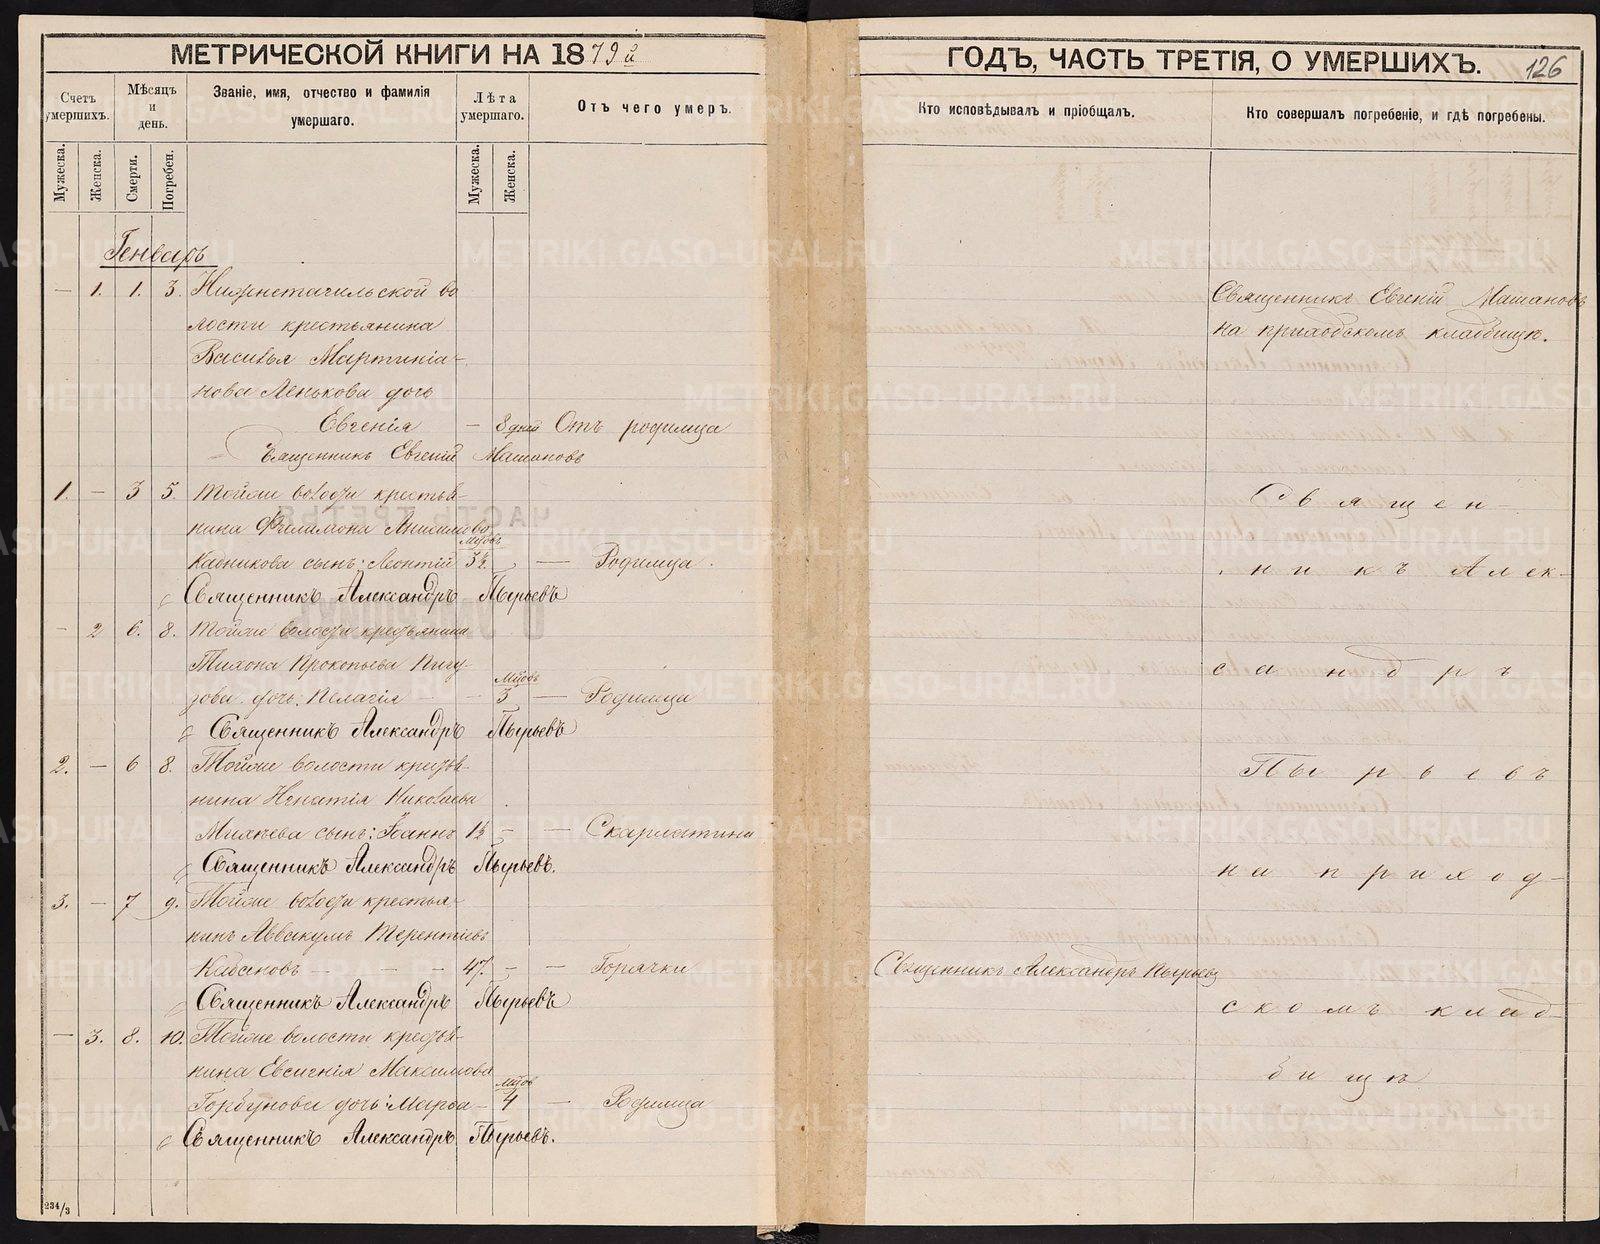 МЕТРИЧЕСКОЙ КНИГИ НА 1879й
ГОДЪ, ЧАСТЬ ТРЕТІЯ, О УМЕРШИХЪ. 126
Счетъ умершихъ.
Мѣсяцъ и день.
Званіе, имя, отчество и фамилія умершаго.
Лѣта умершаго.
Отъ чего умеръ.
Кто исповѣдывалъ и пріобщалъ.
Кто совершалъ погребеніе, и гдѣ погребены.
Мужеска. Женска. Смерти. Погребен. Мужеска. Женска.
Генварь
— 1. 1. 3. Нижнетагильской во
лости крестьянина
Василья Мартиніа-
нова Ленькова дочь
Евгенія — 8 дней Отъ родимца
Священникъ Евгеній Машановъ
Священникъ Евгеній Машановъ
на приходскомъ кладбищѣ.
1. — 3 5. Тойже волости крестья-
нина Филимона Анисимова
Кадникова сынъ: Леонтій мцовъ 3½ — Родимца.
Священникъ Александръ Пырьевъ
— 2 6. 8. Тойже волости крестьянина
Тихона Прокопьева Пигу-
зова дочь: Пелагія — — мцовъ 3 — Родимца
Священникъ Александръ Пырьевъ
2. — 6 8. Тойже волости крестья-
нина Игнатія Николаева
Михѣева сынъ: Іоаннъ 1½ — — Скарлатины
Священникъ Александръ Пырьевъ.
3. — 7 9. Тойже волости крестья-
нинъ Аввакумъ Терентіевъ
Кабановъ — — — 47. — — Горячки
Священникъ Александръ Пырьевъ
Священникъ Александръ Пырьевъ
— 3. 8. 10. Тойже волости крестья-
нина Евсигнія Максимова
Горбунова дочь: Марѳа — мцов 4 — Родимца
Священникъ Александръ Пырьевъ.
Священ-
никъ Алек-
сандръ
Пырьевъ
на приход-
скомъ клад-
бищѣ
234/3
METRIKI.GASO-URAL.RU